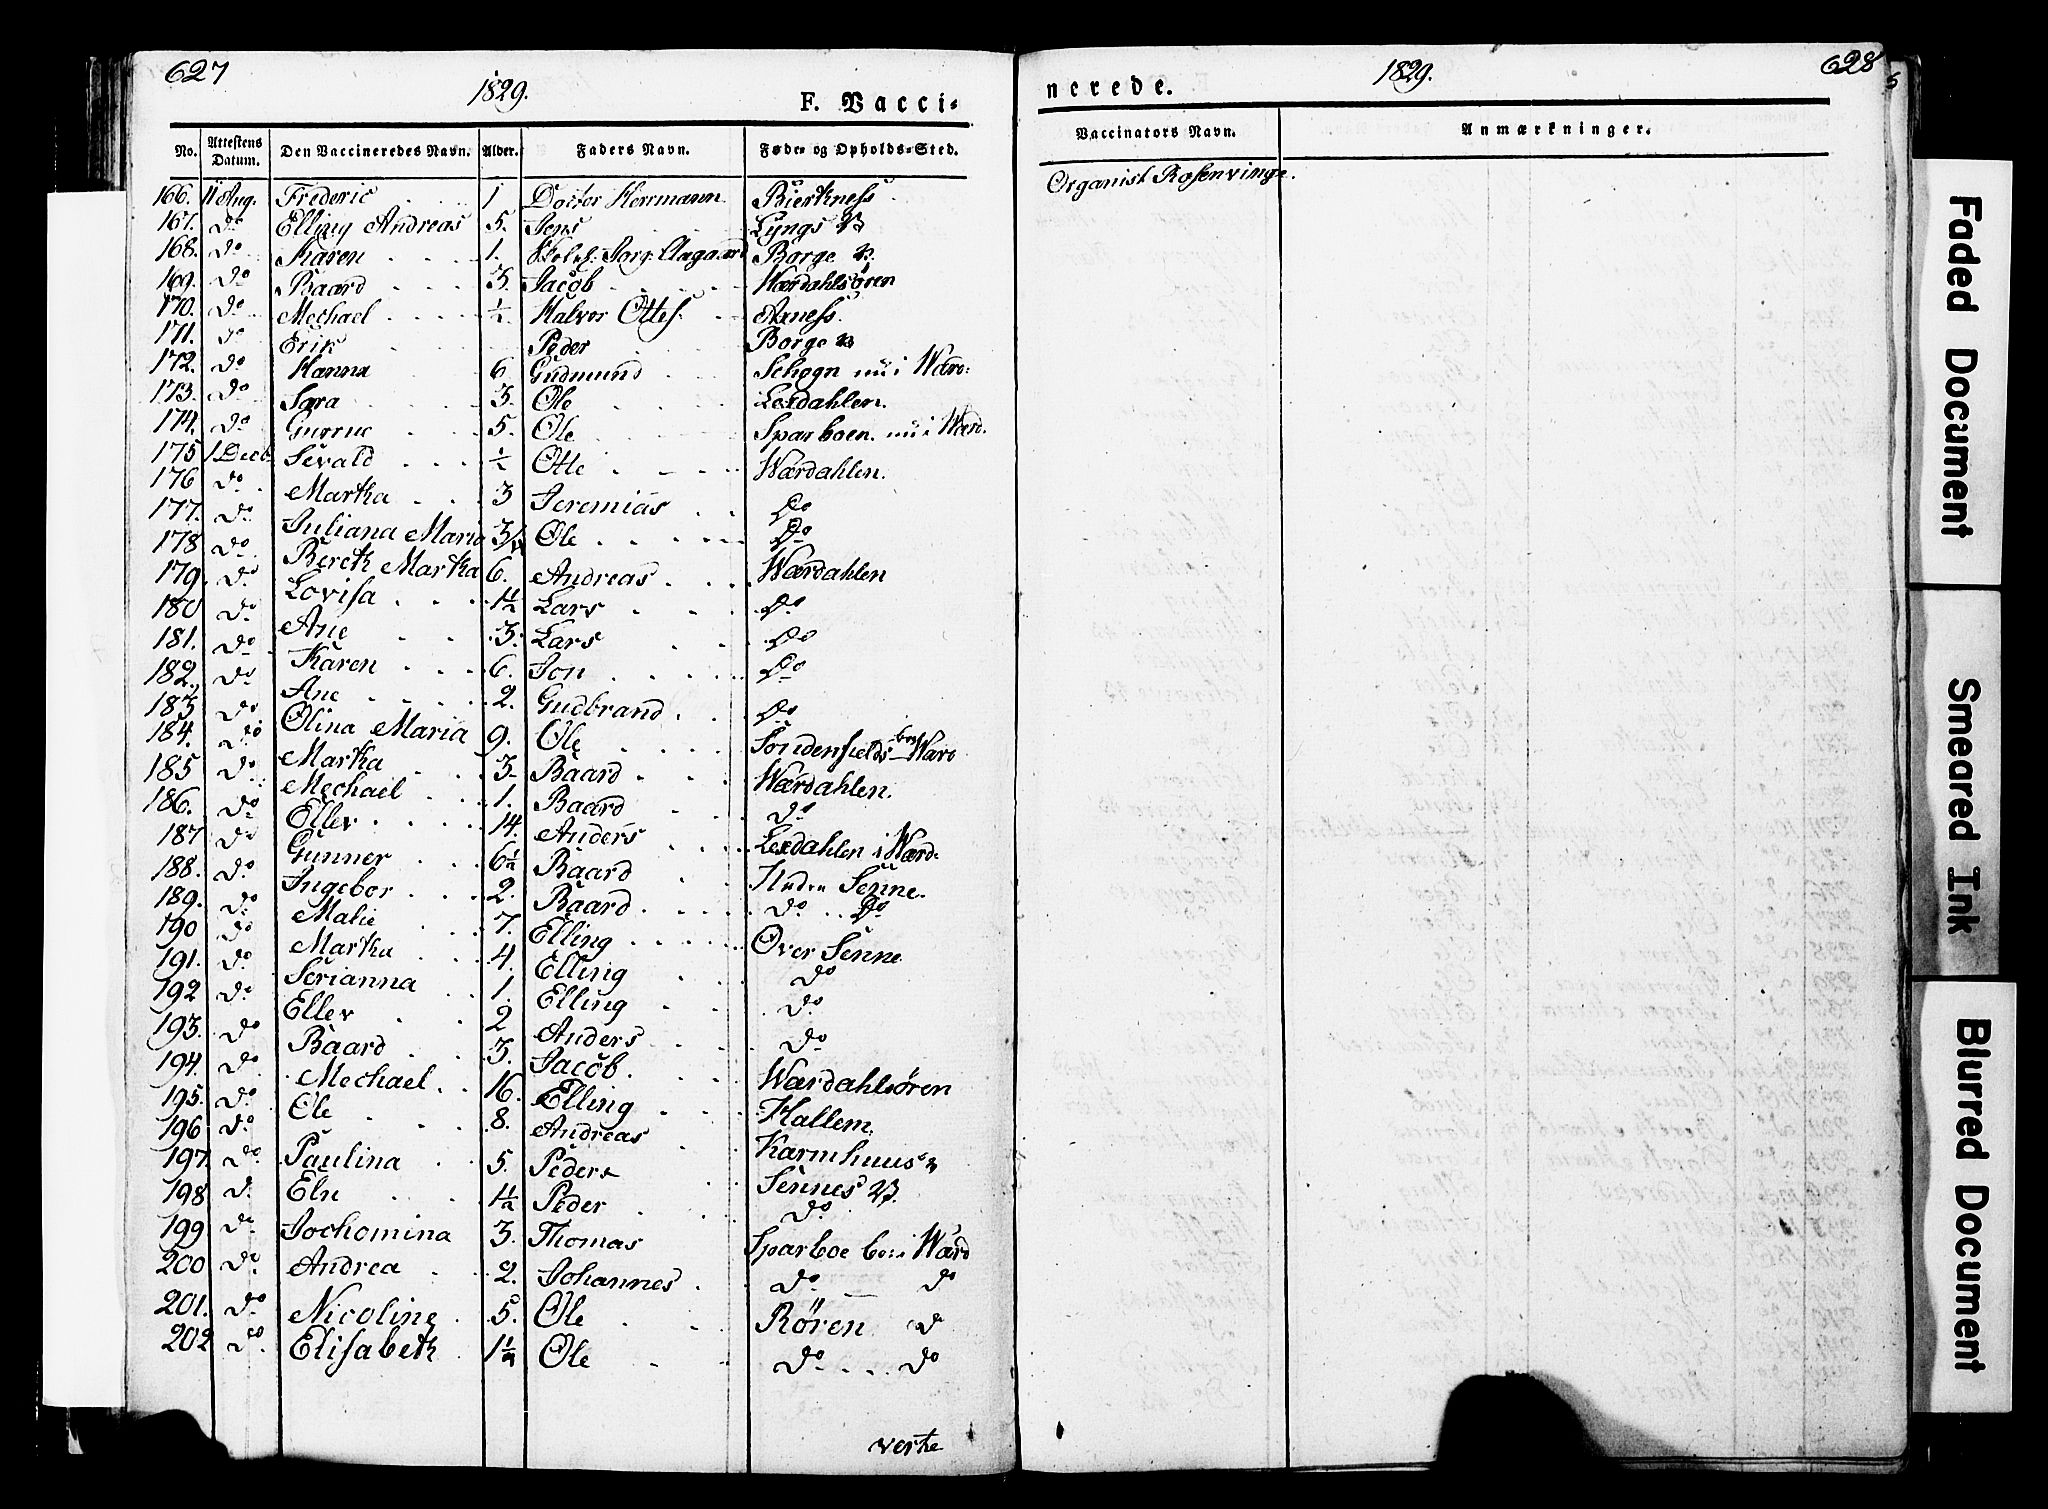 627
1829.
F. Vacci-
No. Attestens Datum. Den Vaccineredes Navn. Alder. Faders Navn. Føde- og Opholds-Sted.
166. 11 Aug. Frederic 1 Doctor Herrmann Bierkness
167. do Elling Andreas 5. Jens Lyngs
168. do Karen 1. Aagaard Borge
169. do Baard 3. Jacob Værdahlsören
170. do Mechael ½ Halvor Ottes. Axness.
171. do Erik Peder Borge
172. do Hanna 6 Gudmund Schogn nu i Wærd:
173. do Sara 3. Ole Lexdahlen.
174. do Gurrue 5. Ole Sparboen. nu i Wærd.
175 1 Decb. Sevald ½ Otte Wærdahlen.
176 do Martha 3 Jeremias do
177. do Juliana Maria 3/4 Ole do
178 do Bereth Martha 6. Andreas Wærdahlen
179. do Lovisa 1½ Lars do
180 do Ane 3. Lars do
181. do Karen 6. Jon do
182. do Ane 2. Gudbrand do
183 do Olina Maria 9. Ole Søndenfields boe Værd
184. do Martha 3. Baard Wærdahlen.
185 do Mechael 1. Baard do
186. do Ellev 14. Anders Lexdahlen i Wærd.
187 do Gunner 6½ Baard Neder Senne.
188. do Ingebor 2. Baard do do
189. do Malie 7. Elling Over Senne
190 do Martha 4. Elling do
191. do Serianna 1. Elling do
192 do Ellev 2 Anders do
193. do Baard 3. Jacob Wærdahlsören
194. do Mechael 16. Elling Hallem.
195. do Ole 8. Andreas Karmhuus
196 do Paulina 5. Peder Sennes
197. do Eln 1½ Peder do
198 do Jochomina 3. Thomas Sparboe boe i Wærd
199 do Andrea 2. Johannes do do
200 do Nicoline 5. Ole Røren do
201. do Elisabeth 1½ Ole do do
202 do
verte
628
1829.
nerede.
Vaccinators Navn. Anmærkninger.
Organist Rosenvinge.
Faded Document
Smeared Ink
Blurred Document